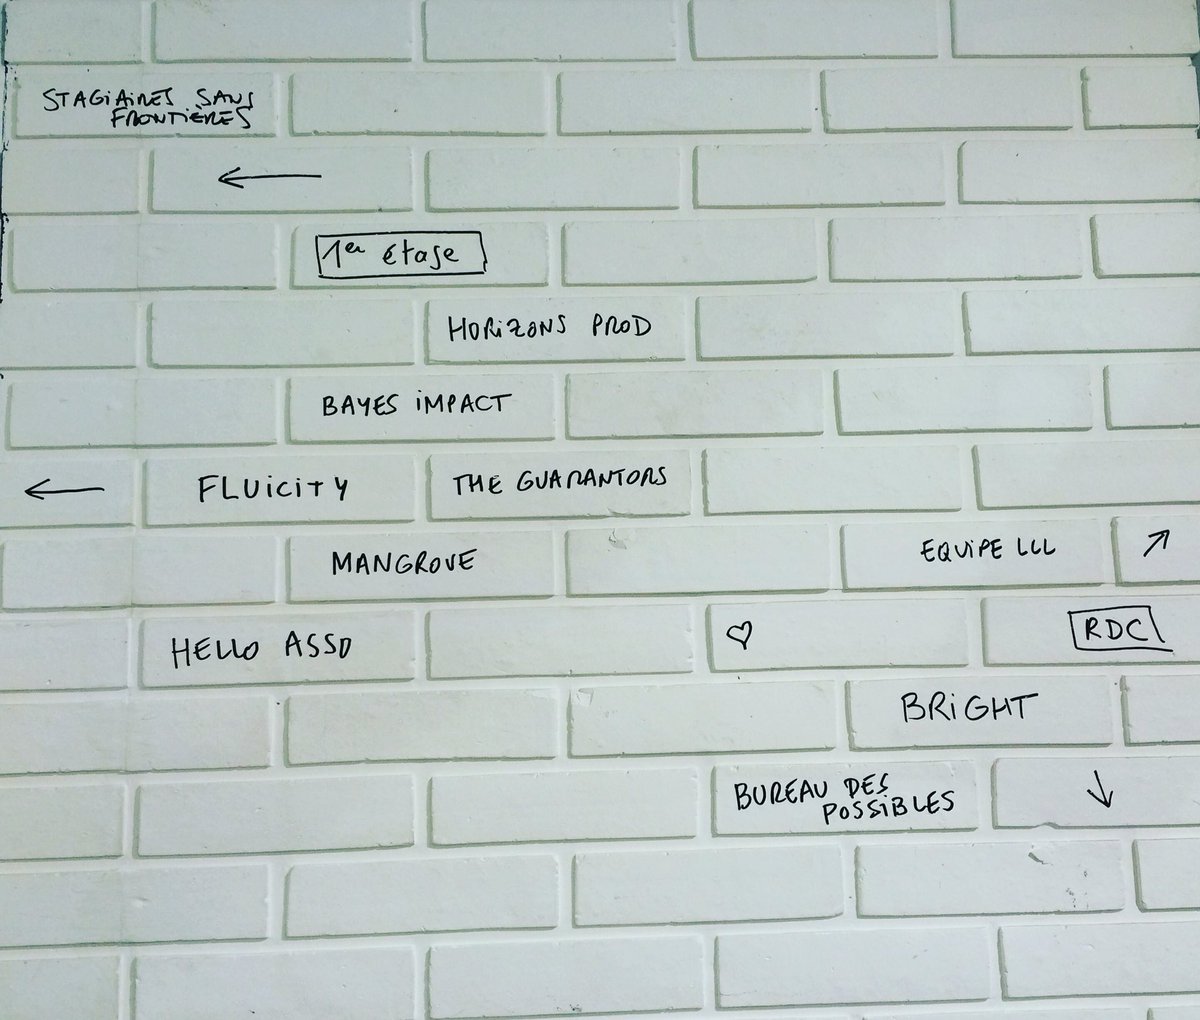 STAGIAIRES SANS
FRONTIÈRES
←
1er étage
HORIZONS PROD
BAYES IMPACT
← FLUICITY THE GUARANTORS
MANGROVE
EQUIPE LCL ↗
HELLO ASSO
♡ RDC
BRIGHT
BUREAU DES
POSSIBLES
↓